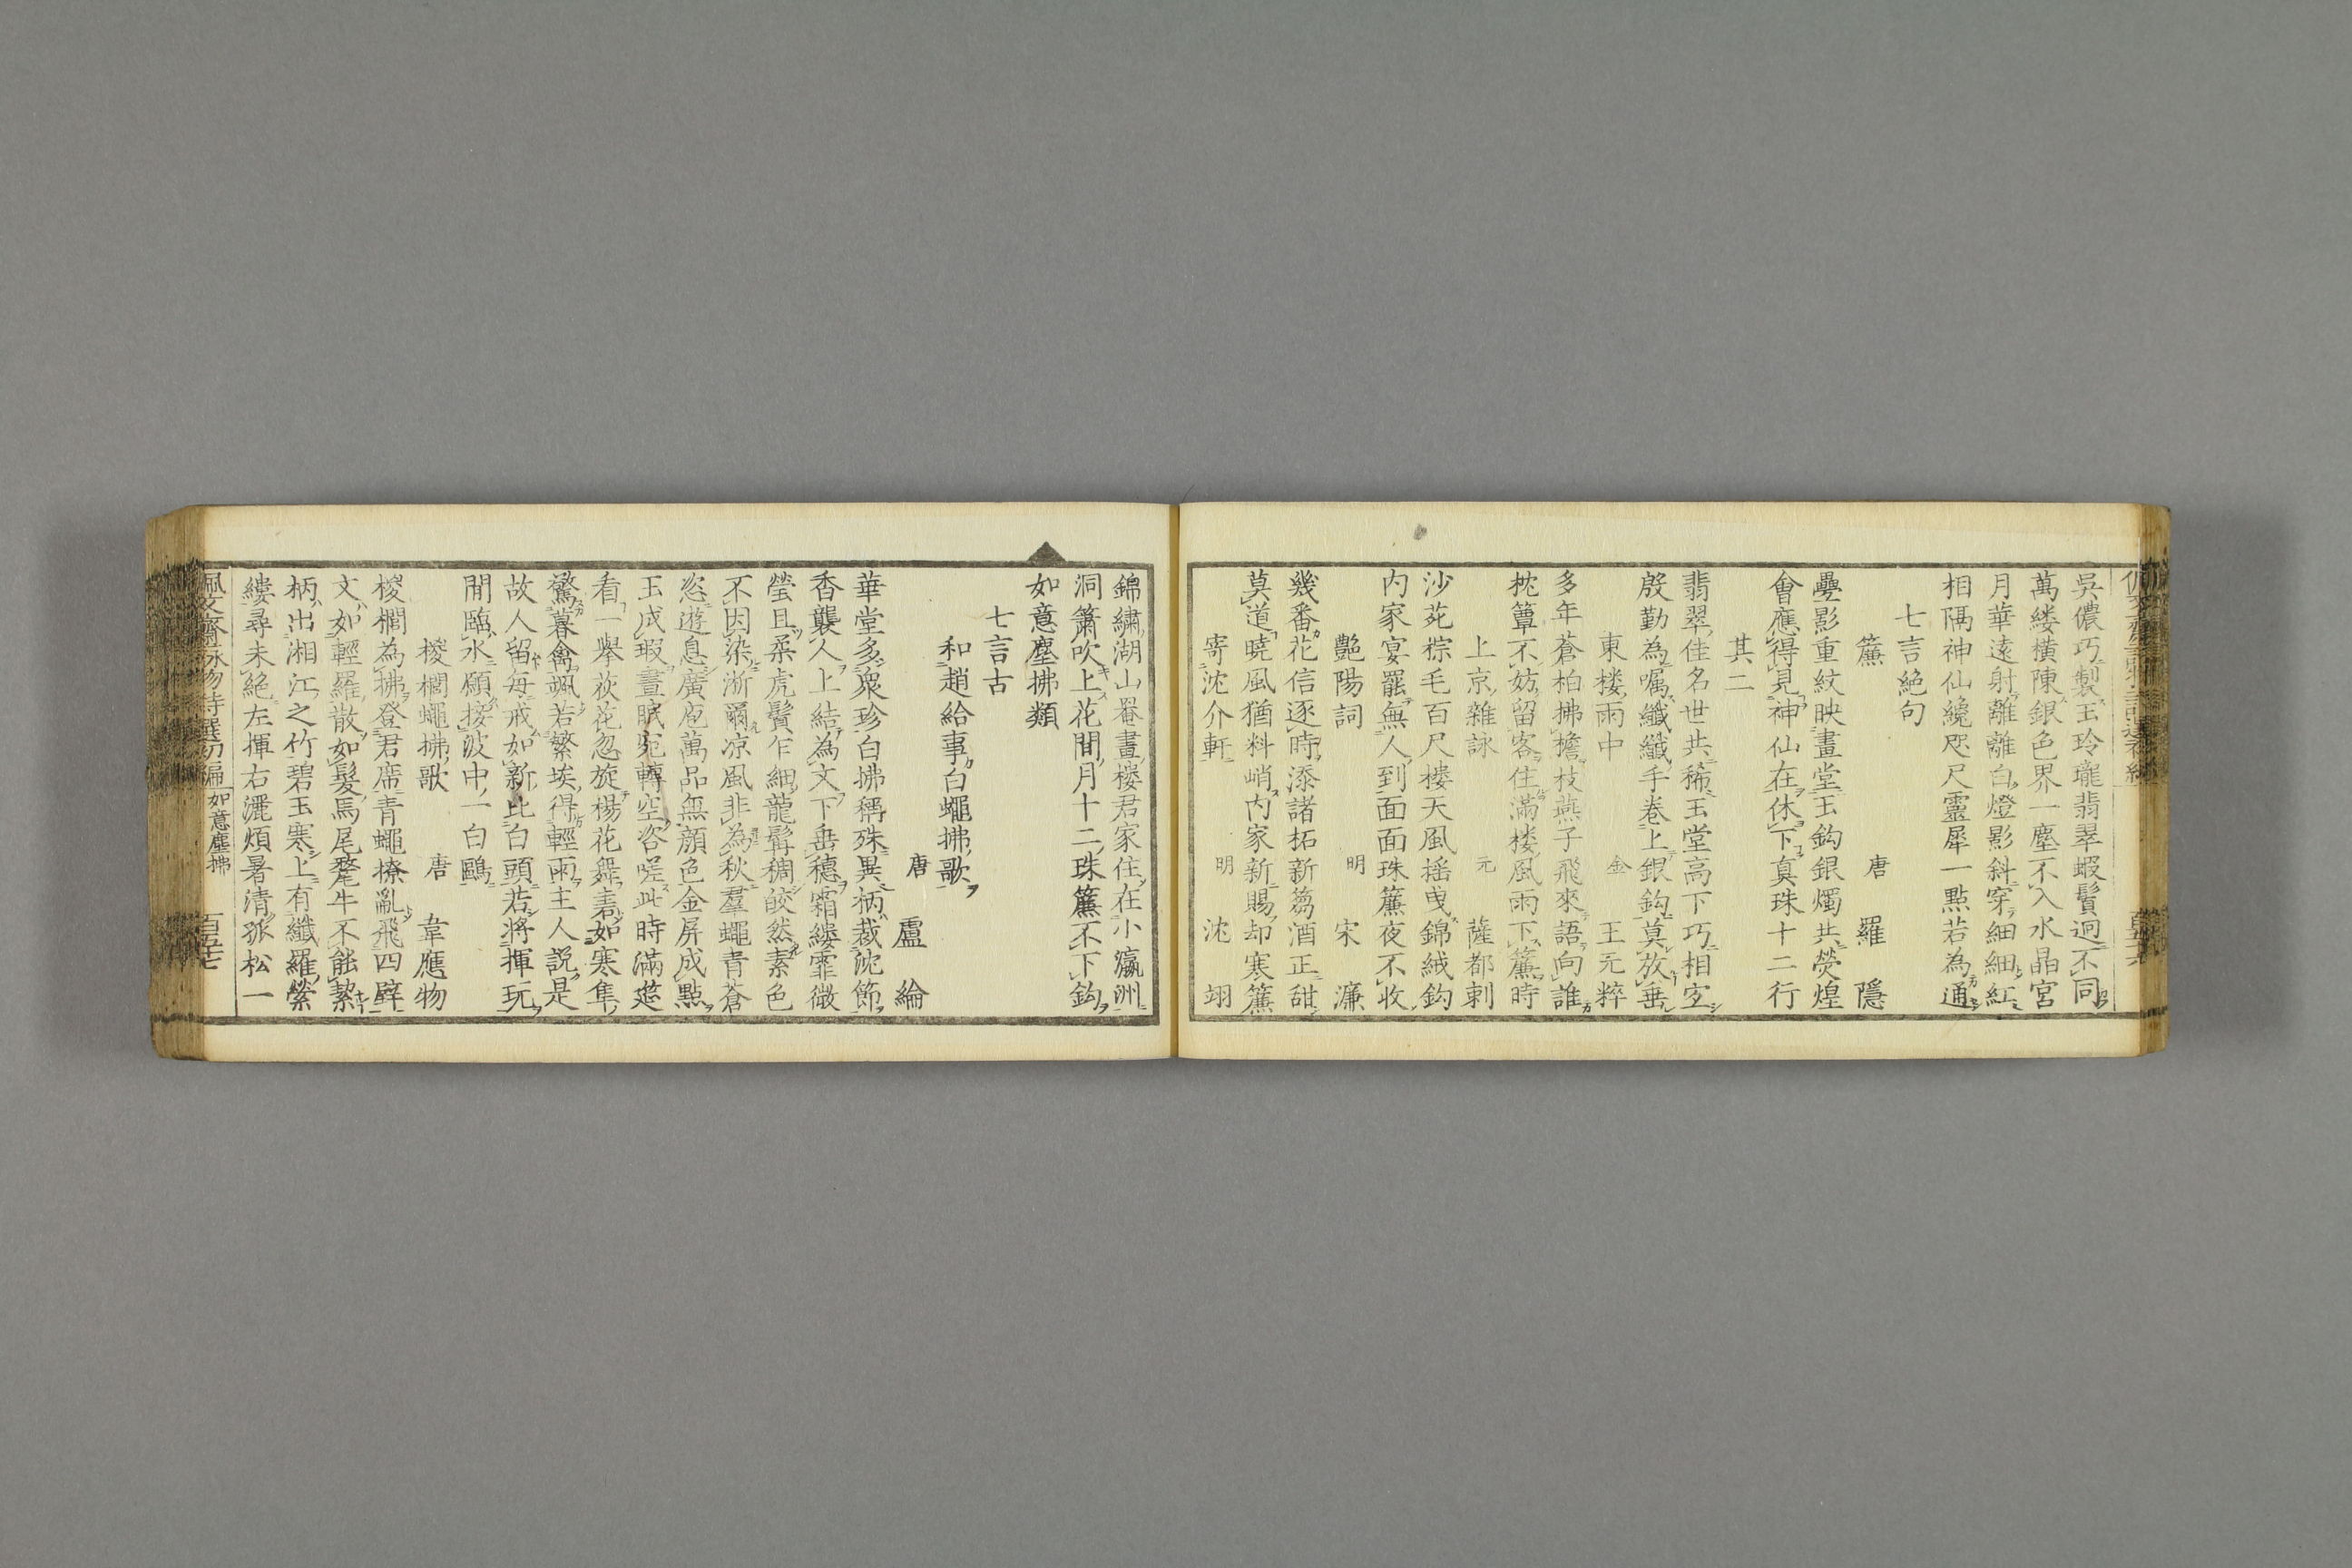 吳儂巧製玉玲瓏翡翠蝦鬚迥不同
萬縷橫陳銀色界一塵不入水晶宮
月華遠射離離白燈影斜穿細細紅
相隔神仙纔咫尺靈犀一點若為通
七言絶句
簾 唐 羅隱
疊影重紋映畫堂玉鈎銀燭共熒煌
會應得見神仙在休下真珠十二行
其二
翡翠佳名世共稀玉堂高下巧相宜
殷勤為嘱纖纖手巻上銀鈎莫放垂
東楼雨中 金 王元粹
多年蒼柏拂檐枝燕子飛來語向誰
枕簟不妨留客住滿楼風雨下簾時
上京雜詠 元 薩都剌
沙苑棕毛百尺楼天風揺曳錦絨鈎
内家宴罷無人到面面珠簾夜不收
艷陽詞 明 宋濂
幾番花信逐時添諸柘新蒭酒正甜
莫道暁風猶料峭内家新賜却寒簾
寄沈介軒 明 沈翊
錦繍湖山罨畫楼君家住在小瀛洲
洞簫吹上花間月十二珠簾不下鈎
如意塵拂類
七言古
和趙給事白蠅拂歌
唐 盧綸
華堂多衆珍白拂稱殊異柄裁沈節
香襲人上結為文下垂穗霜縷霏微
瑩且柔虎鬚乍細龍髯稠皎然素色
不因染淅爾凉風非為秋羣蠅青蒼
恣遊息廣庖萬品無顔色金屏成點
玉成瑕晝眠宛轉空咨嗟此時滿筵
看一擧荻花忽旋楊花舞砉如寒隼
驚暮禽颯若繁埃得輕雨主人説是
故人留毎戒如新比白頭若將揮玩
間臨水願接波中一白鷗
椶櫚蠅拂歌 唐 韋應物
椶櫚為拂登君席青蠅撩亂飛四壁
文如輕羅散如髮馬尾氂牛不能㓗
柄出湘江之竹碧玉寒上有纖羅縈
縷尋未絶左揮右灑煩暑清孤松一
佩文齋詠物詩選初編 如意塵拂 百五十七